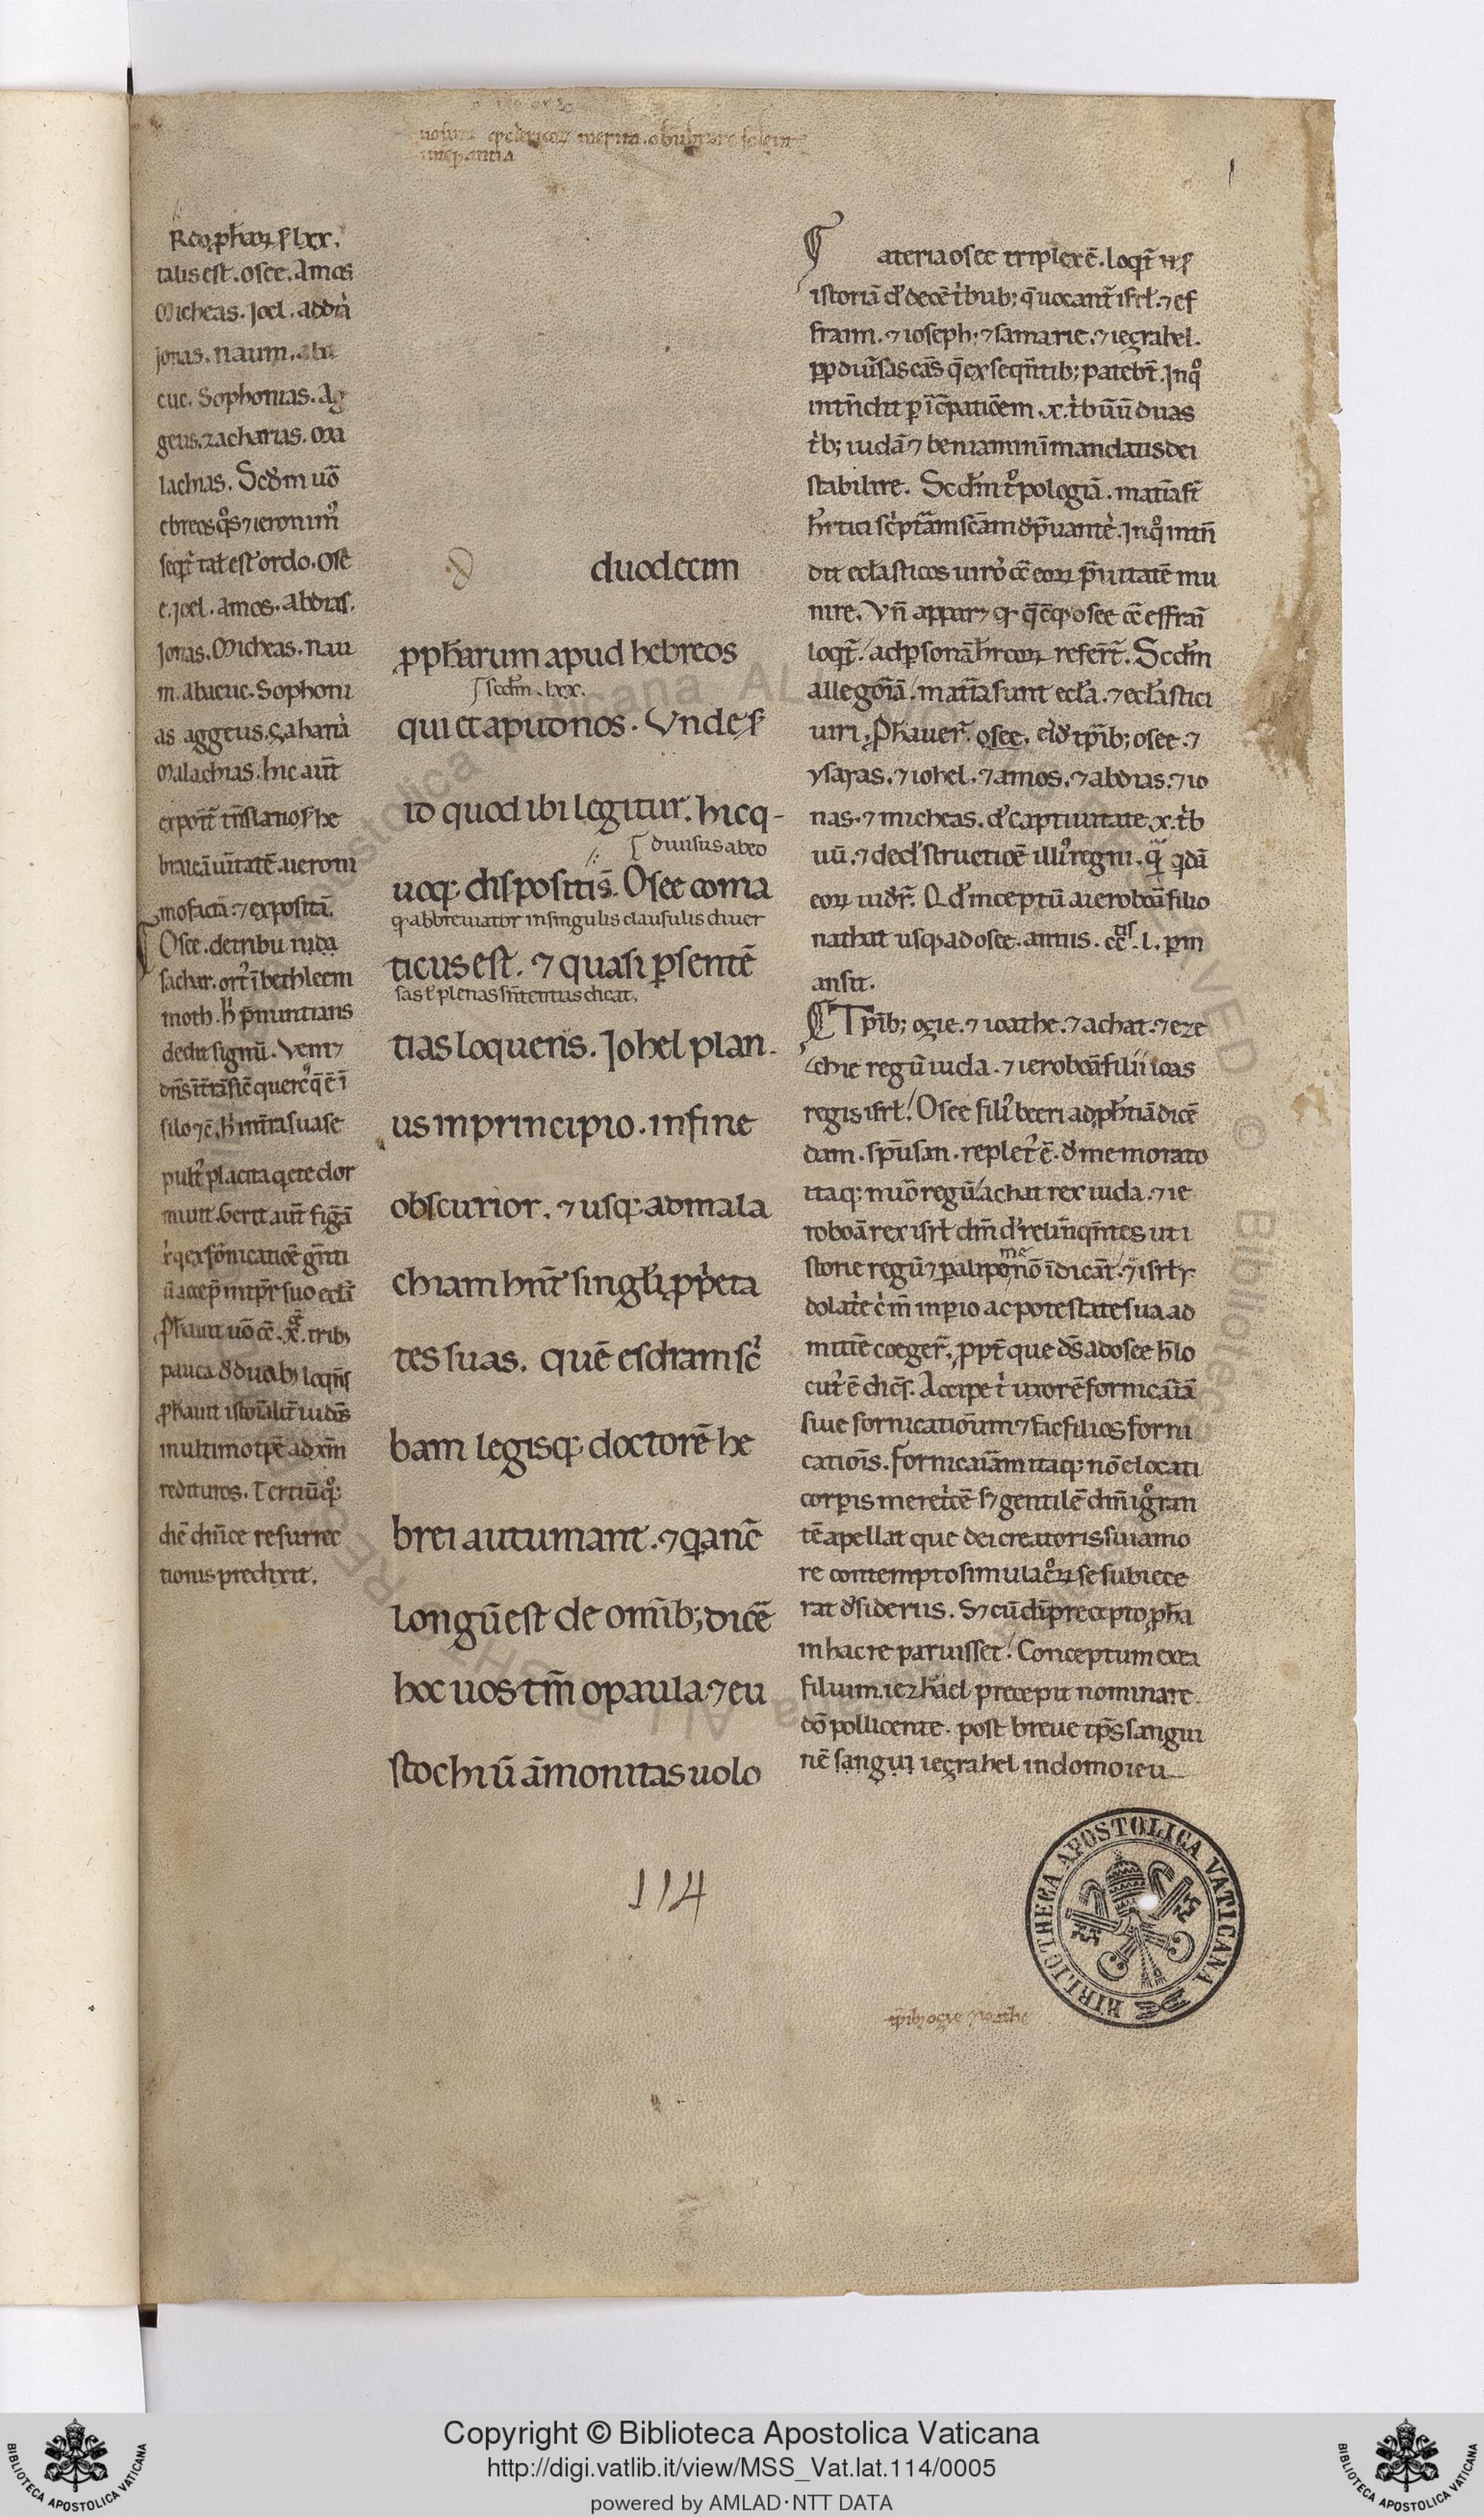 Rdo ꝓphaꝝ ẜ lxx.
talis est. osee. Amos
Micheas. Joel. abdia
Jonas. Naum. aba
cuc. Sophonias. Ag
geus. zacharias. Ma
lachias. Scdm uo
ebreos q̊s ⁊ ieronim᾿
seqr̄ tal est ordo. Ose
e. Joel. Amos. Abdias.
Jonas. Micheas. Nau
m. Abacuc. Sophoni
as aggeus. çahari
Malachias. hic aut̄
expoit̄ t̄nslatio ẜ he
braicā uīitatē. a ieroni
mo factā. ⁊ expositā.
Osee. de tribu iuda
sachar. ort᾿ ī bethleem
moth. h᾿ p̄nuntians
dedit signū. Veni⁊
dn̄s
silo ⁊ē. h᾿ in t̄ra sua se
pult᾿ placita q̄ete dor
miuit. Gerit aut̄ figā
ex fōnicatiōe gn̄ti
ū accep̄ in tp̄r suo eccl̄
ꝓphauit uō .x. trib;
pauca ꝺ duab; loq̄ns
ꝓphauit istorialit̄ iudos
in ultimo tp̄e ad xm̄
redituros. Tertiū q̊;
diē dn̄ice resurrec
tionis predixit.
merita
duodecim
ꝓphꝉarum apud hebreos
scdm̄ .lxx.
qui et aput nos. Vnde ẜ
id quod ibi legitur. hic q-
diuisus ab eo
uoq; dispositis̄. Osee coma
q; abbreuiator in singulis clausulis diuer
ticus est. ⁊ quasi ꝑ sentē
sas ł plenas sn̄tentias dicat.
tias loquens. Johel plan-
us in principio. in fine
obscurior. ⁊ usq; ad mala
chiam hn̄t singłi ꝓpeta
tes suas. quē esdram sc᾿
bam legisq; doctorē he
brei autumant. ⁊ q̄a nc̄
longū est de omīb; dicē
hoc uos tm̄ o paula ⁊ eu
stochiū āmonitas uolo
ateria osee triplex ē. loqt̄
istoriā d᾿ decē t᾿bub; q̄ uocant᾿ isrl. ⁊ ef
fraim. ⁊ ioseph. ⁊ samarie. ⁊ ieçrahel.
ꝓp diūsas cās q̄ ex seqn̄tib; patebt̄. In q̊
intn̄dit ꝑ ic̄patiōem .x. t᾿buū duas
t᾿b; iudā ⁊ beniamin ī mandatis dei
stabilire. Scdm̄ t᾿pologiā. matīa st̄
h᾿rtici sc᾿ptām scām ꝺp̄uante᾿. In q̊ intn̄
dit eclasticos uiro᾿ cē eoꝝ p̄uitatē mu
nire. Vn̄ appar⁊ q; q̄cq; osee cē effrai
loqt̄. ad ꝑsonā h᾿rcoꝝ refert̄. Scdm̄
allegoīā. matīa sunt ecl̄a. ⁊ eclastici
uiri. ꝓphauer̄. osee. eid᾿ tp̄ib; osee. ⁊
ysayas. ⁊ iohel. ⁊ amos. ⁊ abdias. ⁊ io
nas. ⁊ micheas. d᾿ captiuitate .x. t᾿b
uū. ⁊ de d᾿structiōe illi᾿ regni. q̄ qdā
eoꝝ uidr̄. Qd᾿ inceptū a ieroboā filio
nathat usq; ad osee. annis. cc̄. l. ꝑm
ansit.
Tpīb; oçie. ⁊ ioathe. ⁊ achat. ⁊ eze
chie regū iuda. ⁊ ieroboā filii ioas
regis isrl. Osee fili᾿ beeri ad ꝓphtiā dicē
dam. sp̄u san. replet᾿ ē. ꝺ memorato
itaq; nuō regū achat rex iuda. ⁊ ie
roboā rex isrl dm̄ d᾿relinqn̄tes ut i
storie regū ⁊ ꝑalipomenō idicāt. ⁊ isrl y
dolat᾿e c᾿m̄ inꝑio ac potestate sua ad
mittē coeger̄. ꝓpt̄ que dn̄s ad osee h᾿ lo
cut᾿ ē dicēs. Accipe t᾿ uxorē fornicaīā
siue fornicationum ⁊ fac filios forni
catiōis. fornicaīam itaq; nō elocati
corꝑis meret᾿cē ẜ gentilē dm̄ ig̊ran
tē apellat que dei creatoris sui amo
re contempto simulac̊ꝝ se subiece
rat ꝺsideriis. S⁊ cū dīī precepto ꝓpha
in hac re paruisset. Conceptum ex ea
filium. iezhael precepit nominare.
dō pollicente. post breue tp̄s sangui
nē sangui ieçrahel in domo ieu
114
tp̄ib; oçie ⁊ ioathe
BIBLIOTHECA APOSTOLICA VATICANA
Copyright © Biblioteca Apostolica Vaticana
http://digi.vatlib.it/view/MSS_Vat.lat.114/0005
powered by AMLAD·NTT DATA
BIBLIOTECA APOSTOLICA VATICANA
BIBLIOTECA APOSTOLICA VATICANA